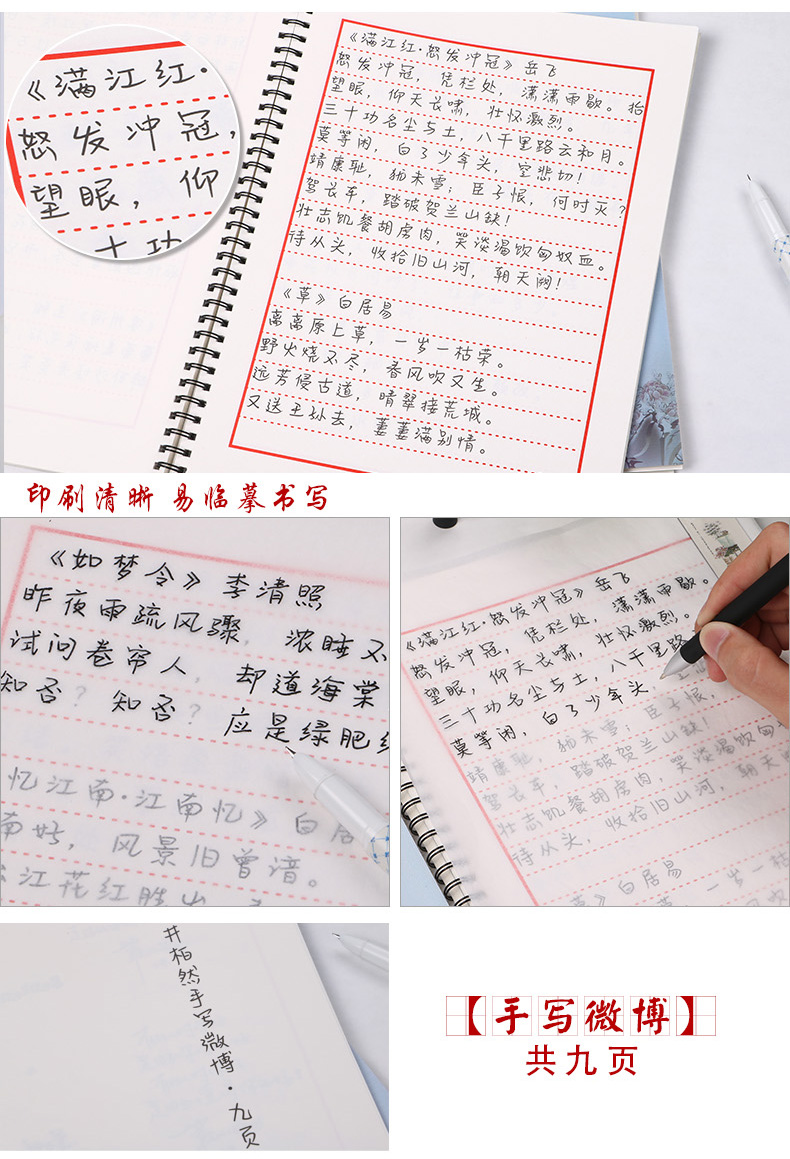 《满江红·
怒发冲冠，
望眼，仰
十功
《满江红·怒发冲冠》岳飞
怒发冲冠，凭栏处，潇潇雨歇。抬
望眼，仰天长啸，壮怀激烈。
三十功名尘与土，八千里路云和月。
莫等闲，白了少年头，空悲切！
靖康耻，犹未雪；臣子恨，何时灭？
驾长车，踏破贺兰山缺！
壮志饥餐胡虏肉，笑谈渴饮匈奴血。
待从头，收拾旧山河，朝天阙！
《草》白居易
离离原上草，一岁一枯荣。
野火烧不尽，春风吹又生。
远芳侵古道，晴翠接荒城。
又送王孙去，萋萋满别情。
印刷清晰 易临摹书写
《如梦令》李清照
昨夜雨疏风骤，浓睡不
试问卷帘人，却道海棠
知否？知否？应是绿肥红
忆江南·江南忆》白居
南好，风景旧曾谙。
江花红胜火
《满江红·怒发冲冠》岳飞
怒发冲冠，凭栏处，潇潇雨歇。
望眼，仰天长啸，壮怀激烈。
三十功名尘与土，八千里路
莫等闲，白了少年头，
靖康耻，犹未雪；臣子恨，
驾长车，踏破贺兰山缺！
壮志饥餐胡虏肉，笑谈渴饮匈
待从头，收拾旧山河，朝天阙
草》白居易
一岁一枯
风吹又
井柏然手写微博·九页
【手写微博】
共九页